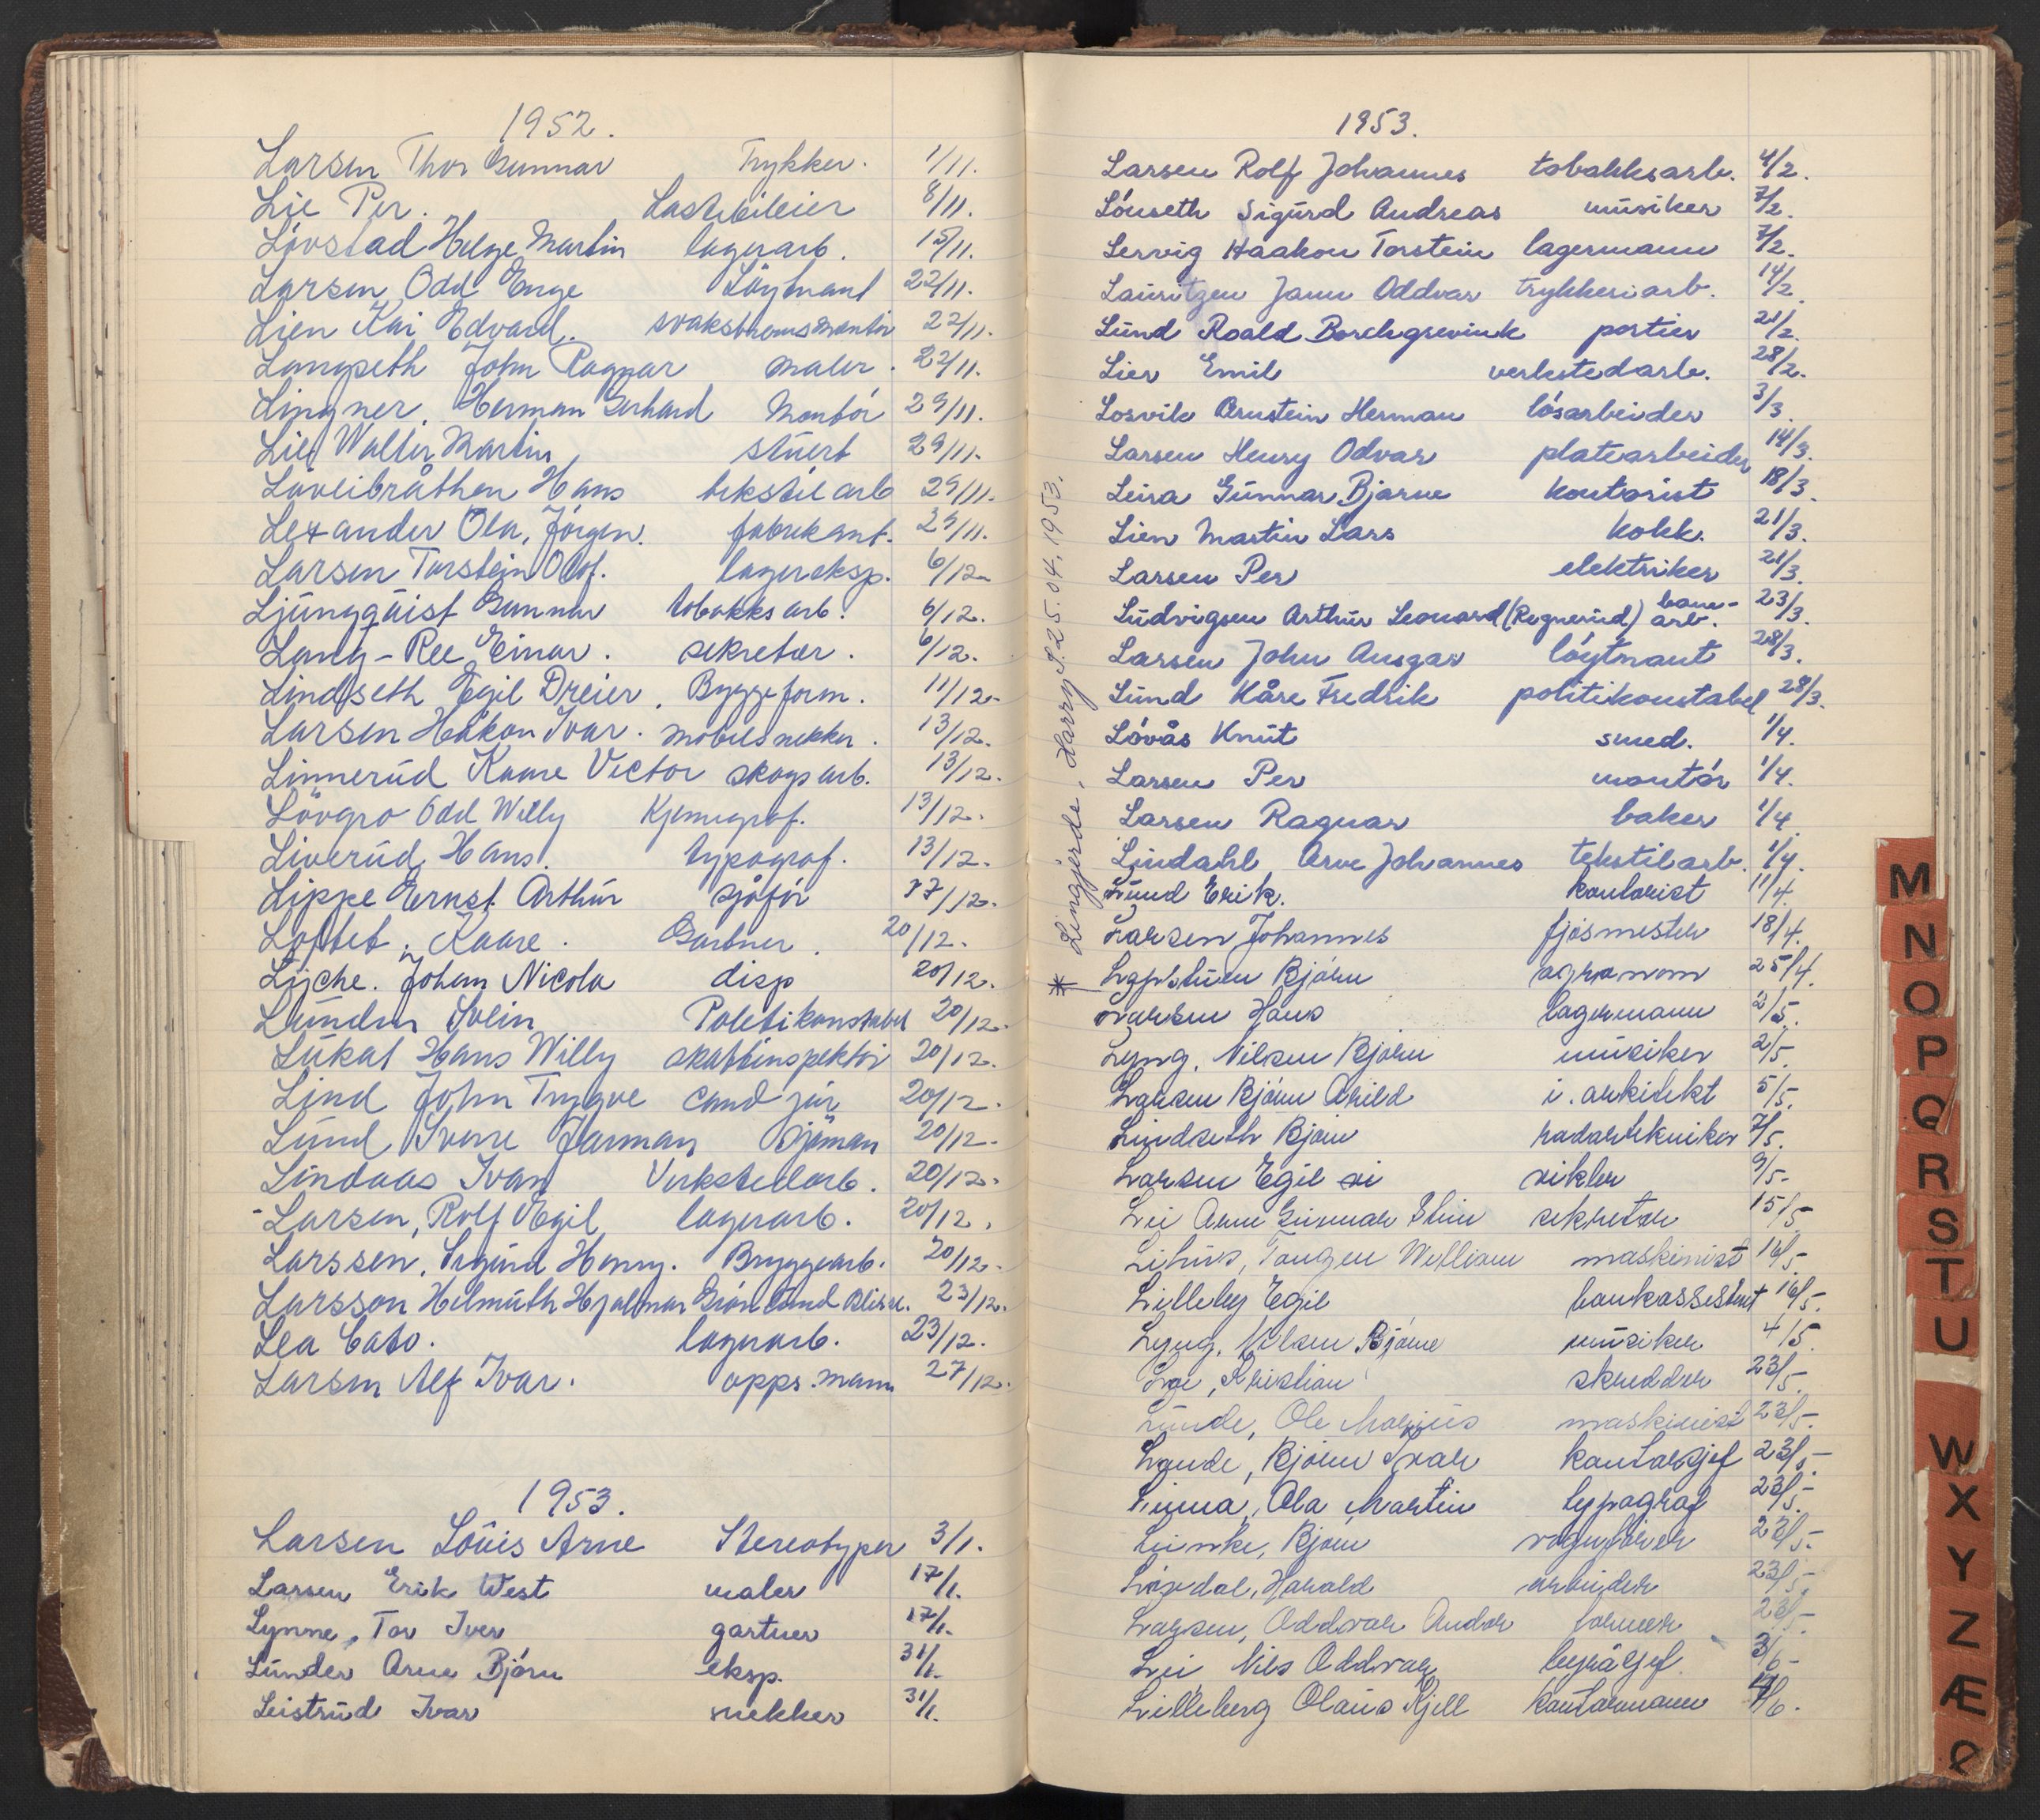 1952.
Larsen Thor Gunnar Trykker. 1/11.
Lie Per. Lastebileier 8/11.
Lövstad Helge Martin lagerarb. 15/11.
Larsen Odd Enge Löytnant 22/11.
Lien Kai Edvard. svakströmsmontör 22/11.
Langseth John Ragnar maler. 22/11.
Lingner, Herman Gerhard Montör 29/11.
Lie Walter Martin stuert 29/11.
Löveibråthen Hans tekstilarb 29/11.
Lexander Ola, Jörgen. fabrikant. 29/11.
Larsen Torstein Olof. lagereksp. 6/12.
Ljungquist Gunnar tobakksarb. 6/12.
Lang-Ree Einar. sekretær. 6/12.
Lindseth Egil Dreier. Byggeform. 11/12.
Larsen Håkon Ivar. möbelsnekker. 13/12.
Linnerud Kaare Victor skogsarb. 13/12.
Lövgro Odd Willy Kjemigraf. 13/12.
Liverud Hans. typograf. 13/12.
Lippe Ernst Arthur sjåför 17/12.
Loftet, Kaare. Gartner. 20/12.
Lyche. Johan Nicola disp 20/12.
Lunden Svein Politikonstabel 20/12.
Lukat Hans Willy skatteinspektör 20/12.
Lind John Trygve cand jur 20/12.
Lund Sverre Jarman Sjöman 20/12.
Lindaas Ivan Verkstedarb. 20/12.
-Larsen, Rolf Egil lagerarb. 20/12.
Larssen, Sigurd Henry. Bryggearb. 20/12.
Larsson Helmuth Hjalmar Grönlund 23/12.
Lea Cato. lagerarb. 23/12.
Larsen Alf Ivar. opps.mann 27/12.
1953.
Larsen Louis Arne Stereotypør 3/1.
Larsen Erik West maler 17/1.
Lynne, Tor Iver gartner 17/1.
Lunder Arne Björn eksp. 31/1.
Leistrud Ivar snekker 31/1.
1953.
Larsen Rolf Johannes tobakksarb. 4/2.
Lönseth Sigurd Andreas musiker 7/2.
Lervig Haakon Torstein lagermann 7/2.
Lauritzen Jann Oddvar trykkeriarb. 14/2.
Lund Roald Borchgrevink portier 21/2.
Lier Emil verkstedarb. 28/2.
Losvik Arnstein Herman lösarbeider 3/3.
Larsen Henry Odvar platearbeider 14/3.
Leira Gunnar Bjarne kontorist 18/3.
Lien Martin Lars kokk. 21/3.
Larsen Per elektriker 21/3.
Ludvigsen Arthur Leonard (Regnerud) bane-arb. 23/3.
Larsen John Ansgar löytnant 28/3.
Lund Kåre Fredrik politikonstabel 28/3.
Lövås Knut smed. 1/4.
Larsen Per montör 1/4.
Larsen Ragnar baker 1/4.
Lindahl Arve Johannes tekstilarb. 1/4.
Lund Erik. kontorist 11/4.
Larsen Johannes fjösmester 18/4.
* Lingjerde, Harry S. 25.04.1953.
Björn agronom 25/4.
Larsen Hans lagermann 2/5.
Lyng, Nilsen Björn musiker 2/5.
Larsen Björn Arild i.arkitekt 5/5.
Lindseth Björn radartekniker 7/5.
Larsen Egil vikler 9/5-
Lie Arne Gunnar sekretær 15/5
Tangen William maskinist 16/5-
Lilleby Egil bankassistent 16/5.
Lyng, Nilsen Björne musiker 4/5.
Lae, Kristian skredder 23/5.
Lunde, Ole Marius maskinist 23/5-
Lande, Björn Ivar kontorsjef 23/5-
Linna, Ola Martin typograf 23/5-
Björn vognförer 23/5-
Lövdal, Harald arbeider 23/5-
Larsen, Oddvar Andor former 23/5-
Lie Nils Oddvar byråsjef 3/6-
Lilleberg Olaus Kjell kontormann 4/6.
M
N
O
P
Q
R
S
T
U
W
X
Y
Z
Æ